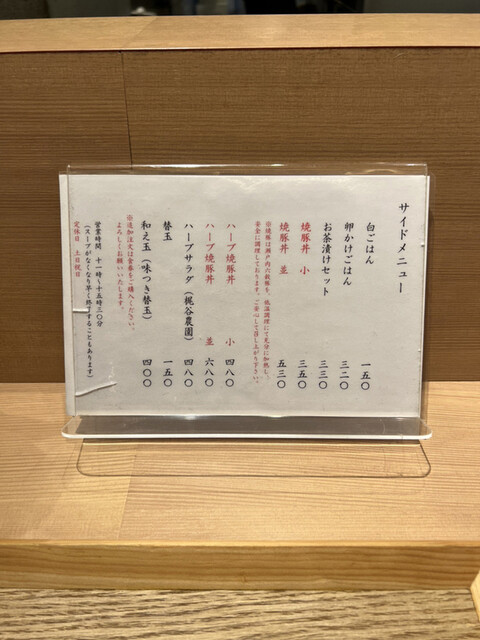 サイドメニュー
白ごはん 一五〇
卵かけごはん 三二〇
お茶漬けセット 三三〇
焼豚丼 小 三五〇
焼豚丼 並 五三〇
※焼豚は瀬戸内六穀豚を、低温調理にて充分に加熱し、
安全に調理しております。ご安心して召し上がり下さい。
ハーブ焼豚丼 小 四八〇
ハーブ焼豚丼 並 六八〇
ハーブサラダ(梶谷農園) 四八〇
替玉 一五〇
和え玉(味つき替玉) 四〇〇
※追加注文は食券をご購入ください。
よろしくお願いいたします。
営業時間 十一時〜十五時三〇分
(スープがなくなり早く終了することもあります)
定休日 土日祝日